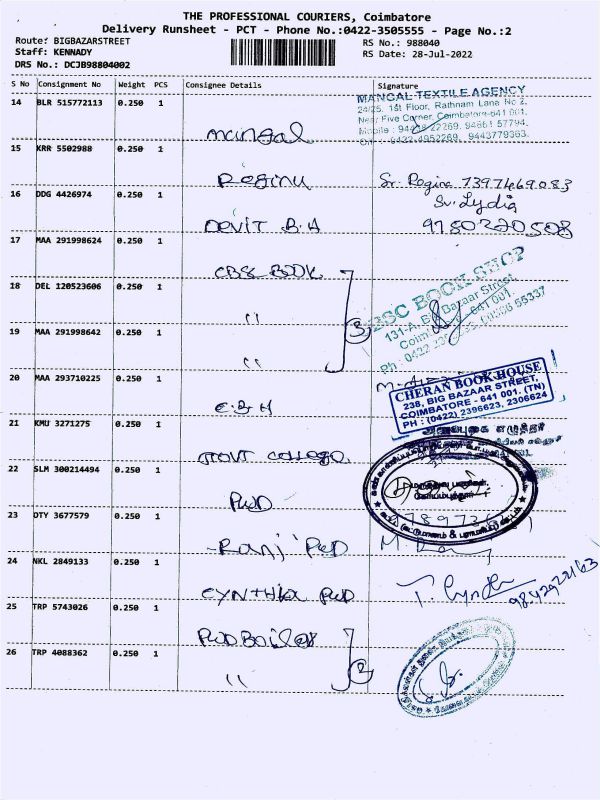 THE PROFESSIONAL COURIERS, Coimbatore
Delivery Runsheet - PCT - Phone No.:0422-3505555 - Page No.:2
Route: BIGBAZARSTREET
RS No.: 988040
Staff: KENNADY
RS Date: 28-Jul-2022
DRS No.: DCJB98804002
S No Consignment No Weight PCS Consignee Details Signature
14 BLR 515772113 0.250 1
Mangal
MANGAL TEXTILE AGENCY
24/25, 1st Floor, Rathnam Lane No 2,
Near Five Corner, Coimbatore-641 001.
15 KRR 5502988 0.250 1
Regina
Sr. Regina 7397469083
Sr. Lydia
16 DDG 4426974 0.250 1
Devit B.A
9780220508
17 MAA 291998624 0.250 1
CBS BOOK
18 DEL 120523606 0.250 1
"
3
BOOK SHOP
131-A, Big Bazaar Street,
641 001.
19 MAA 291998642 0.250 1
"
20 MAA 293710225 0.250 1
C.B.H
CHERAN BOOK HOUSE
238, BIG BAZAAR STREET,
COIMBATORE - 641 001. (TN)
PH : (0422) 2396623, 2306624
21 KMU 3271275 0.250 1
GOVT COLLEGE
22 SLM 300214494 0.250 1
PWD
கோயம்புத்தூர்
23 DTY 3677579 0.250 1
Ranji PWD
24 NKL 2849133 0.250 1
CYNTHIA PWD
T. Cynth
9842922163
25 TRP 5743026 0.250 1
PWD Boiler
26 TRP 4088362 0.250 1
"
2